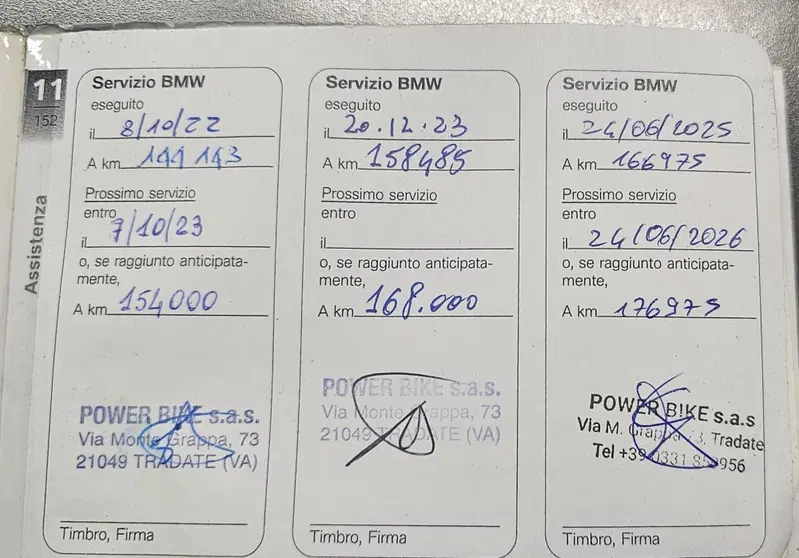 11
152
Assistenza
Servizio BMW
eseguito
il 8/10/22
A km 144 143
Prossimo servizio
entro
il 7/10/23
o, se raggiunto anticipata-
mente,
A km 154000
POWER BIKE s.a.s.
Via Monte Grappa, 73
21049 TRADATE (VA)
Timbro, Firma
Servizio BMW
eseguito
il 20.12.23
A km 158485
Prossimo servizio
entro
il
o, se raggiunto anticipata-
mente,
A km 168.000
POWER BIKE s.a.s.
Via Monte Grappa, 73
21049 TRADATE (VA)
Timbro, Firma
Servizio BMW
eseguito
il 24/06/2025
A km 166975
Prossimo servizio
entro
il 24/06/2026
o, se raggiunto anticipata-
mente,
A km 176975
POWER BIKE s.a.s
Via M. Grappa 73, Tradate
Tel +39 0331
Timbro, Firma